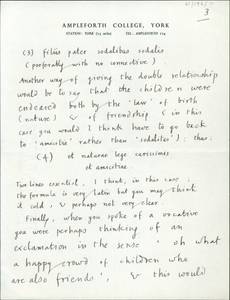 3
AMPLEFORTH COLLEGE, YORK
(3) filiis pater sodalibus sodalis
(preferably with no connective)
Another way of giving the double relationship
would be to say that the children were
endeared both by the 'law' of birth
(nature) & of friendship (in this
case you would I think have to go back
to 'amicitia' rather than 'sodalitas'); thus:
(4) et naturae lege carissimis
et amicitiae
Two lines essential, I think, in this case;
the formula is very latin but you may think
it cold, & perhaps not very clear.
Finally, when you spoke of a vocative
you were perhaps thinking of an
exclamation in the sense 'oh what
a happy crowd of children who
are also friends', & this would